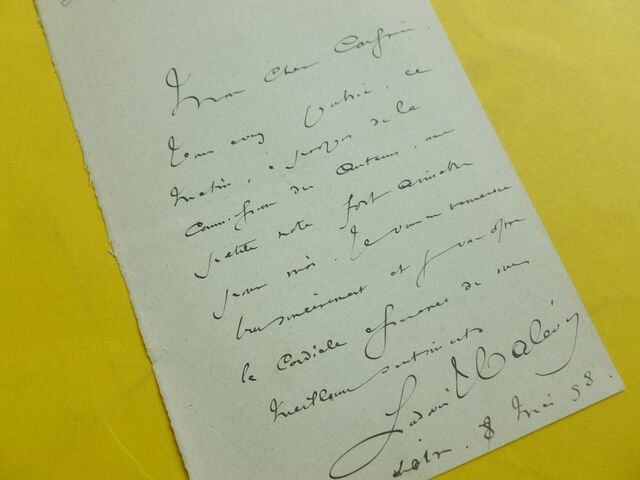 Mon cher Confrère
Vous avez publié, ce
matin, à propos de la
Commission des Auteurs, une
petite note fort aimable
pour moi. Je vous en remercie
très sincèrement et vous offre
la cordiale expression de mes
meilleurs sentiments
Ludovic Halévy
8 Mai 98.